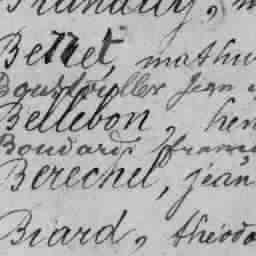 Bettet, mathu
Boustouller Jean
Bellebon, hen
Boudard franç
Berechel, jean
Biard, théodo